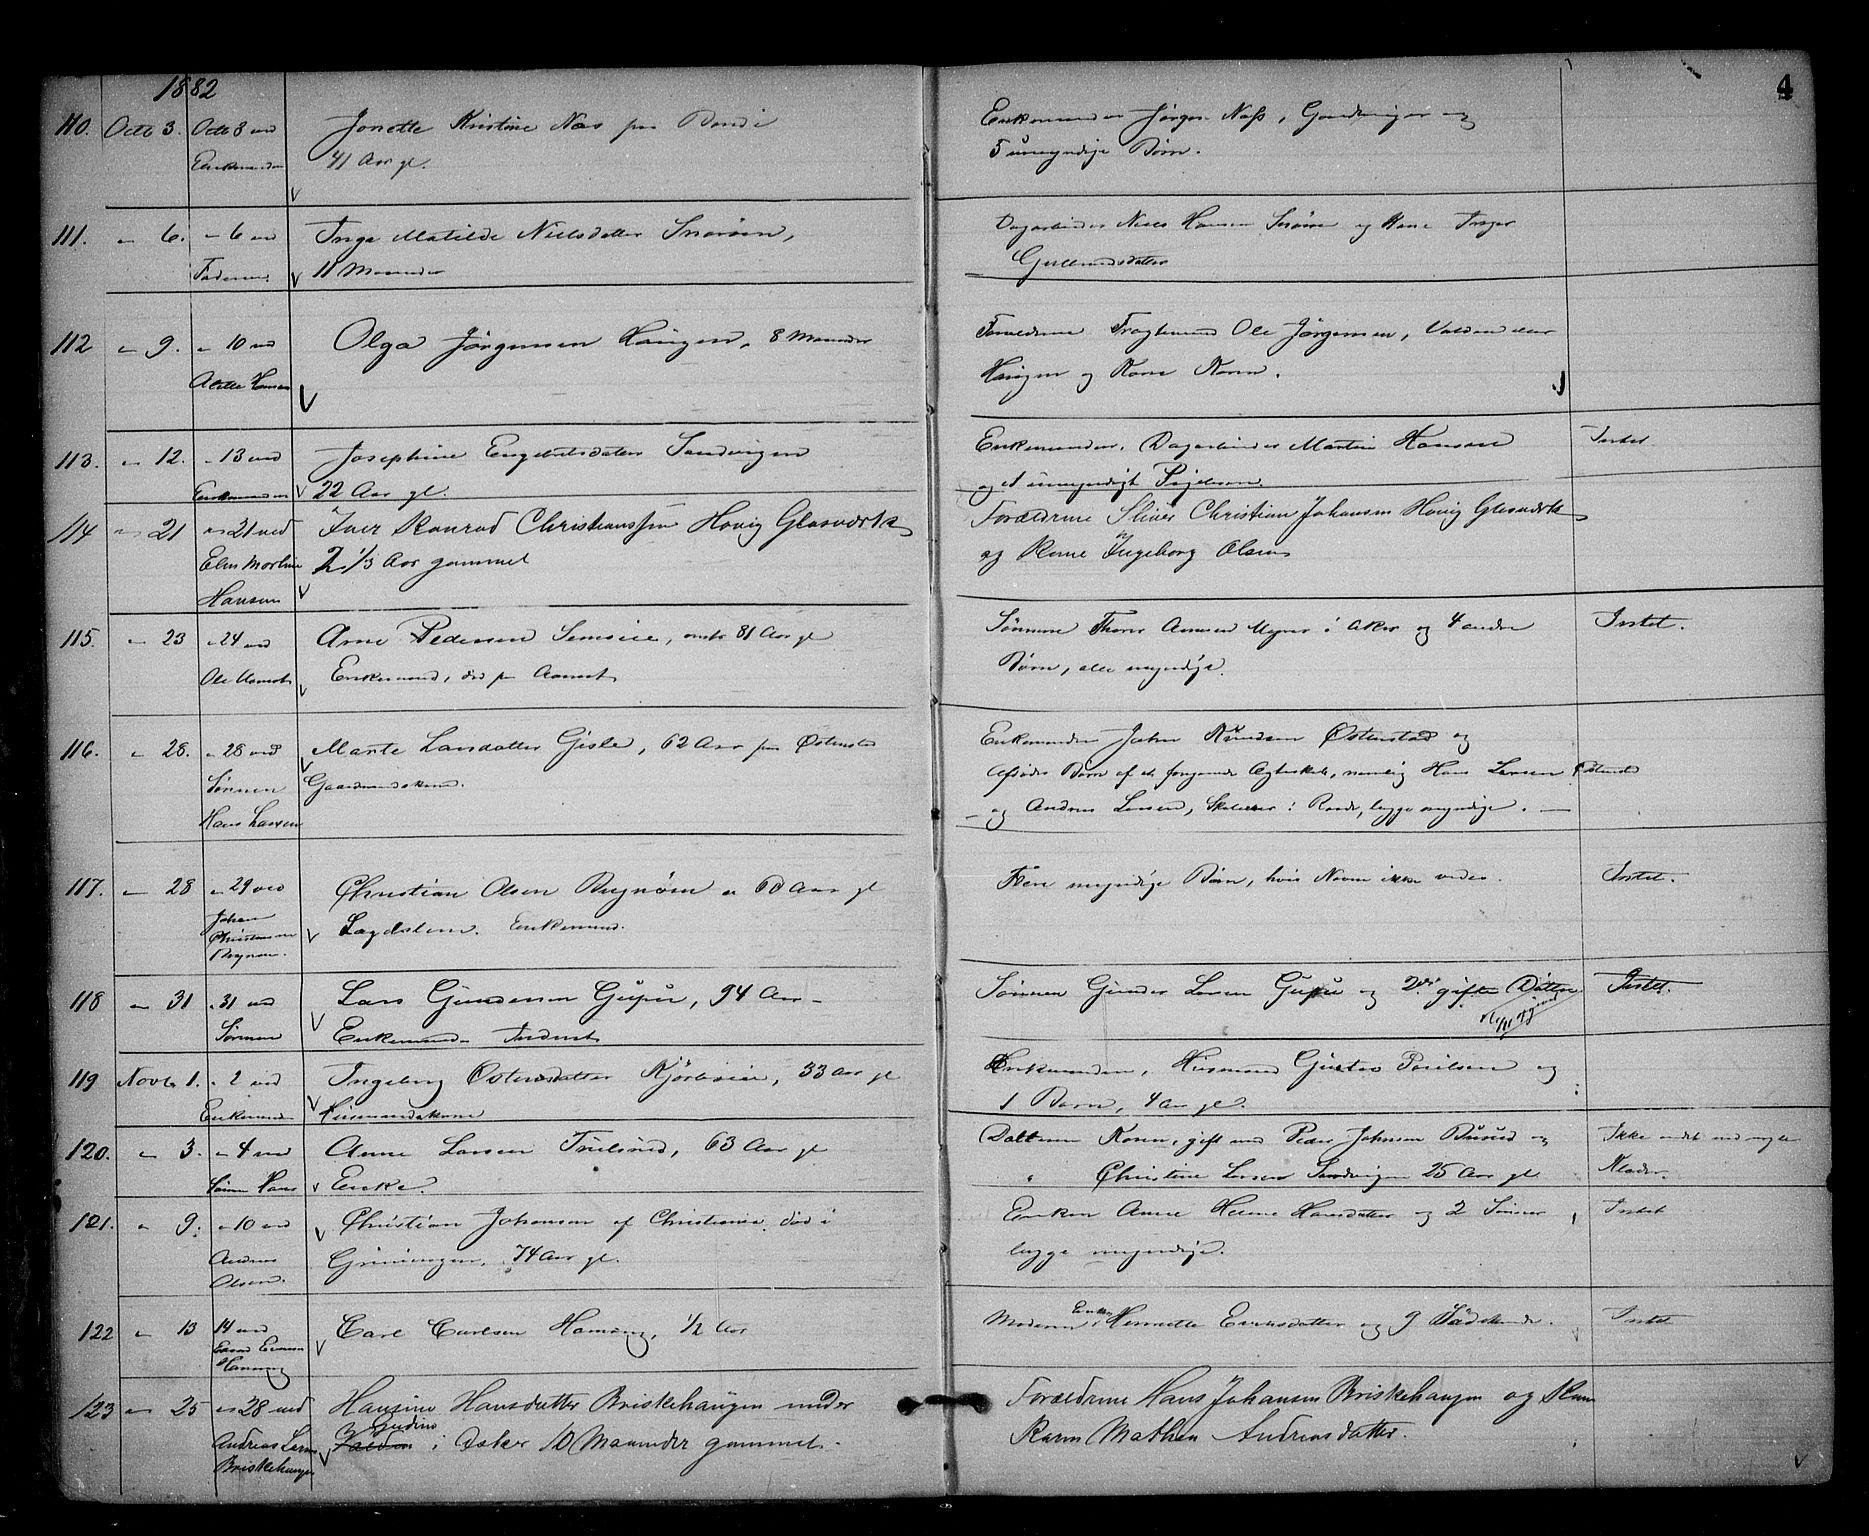 1882
4
110. Octb 3. Octb 3 ved Jonette Kristine Næs paa
Enkemanden 41 Aar gl.
Enkemanden Jørgen Næss, Gaardbruger og
5 umyndige Børn.
111. " 6. " 6 ved Inga Matilde Nielsdatter Snarøen,
Faderen 11 Maaneder
Dagarbeider Niels Hansen Snarøen og Kone Inger
Gulbrandsdatter
112 " 9. " 10 ved Olga Jørgensen Haugen, 8 Maaneder
Hansen
Forældrene Fragtemand Ole Jørgensen,
Haugen og Kone Karen.
113. " 12. " 13 ved Josephine Engebretsdatter Sandvigen
Enkemanden 22 Aar gl.
Enkemanden, Dagarbeider Martin Hansen Intet
og et umyndigt
114 " 21 " 21 ved Iver Konrad Christianssen Høvig Glasværk
Elen Martine 2 1/3 Aar gammel
Hansen
Forældrene Sliber Christian Johansen Høvig Glasværk
og Kone Ingeborg Olsen
115. " 23 " 24 ved Arne Pedersen Semseie, 81 Aar gl
Ole Aamodt Enkemand, død paa Aamodt
Sønnen Thorer Arnesen i Aker og 4 andre Intet.
Børn, alle myndige.
116. " 28. " 28 ved Marte Larsdatter Gisle, 62 Aar paa Østenstad
Sønnen Gaardmandskone.
Hans Larsen
Enkemanden John Knudsen Østenstad og
Afdødes Børn af et foregaaende Ægteskab, nemlig Hans Larsen Østenstad
og Andreas Larsen, Skolelærer i Raade, begge myndige.
117. " 28 " 29 ved Christian Olsen Bygnøen 60 Aar gl
Johan Lægdslem. Enkemand.
Christiansen
Flere myndige Børn, hvis Navne ikke vides. Intet.
118 " 31 " 31 ved Lars Gundersen Gupu, 94 Aar
Sønnen Enkemand
Sønnen Gunder Larsen Gupu og 2de gifte Døttre Intet.
119 Novb 1. " 2 ved Ingeborg Østensdatter Kjørboeie, 33 Aar gl
Enkemanden Husmandskone
Enkemanden, Husmand Gustav Poulsen og
1 Barn, 4 Aar gl.
120. " 3. " 4 ved Anne Larsen, 63 Aar gl
Sønnen Hans Enke.
Datteren Karen, gift med Peder Johnsen og Ikke andet end nogle
" Christine Larsen Sandvigen 25 Aar gl Klæder.
121. " 9. " 10 ved Christian Johansen af Christiania, død i
Andreas Grimingen, 74 Aar gl.
Olsen.
Enken Anne Helene Hansdatter og 2 Sønner Intet
begge myndige.
122 " 13 14 ved Carl Carlsen Hamang, 1/2 Aar
Hamang
Moderen Enke Hennette Evensdatter og 9 Sødskende. Intet
123 " 25 " 28 ved Hansine Hansdatter Briskehaugen under
Andreas Larsen i Asker 10 Maaneder gammel.
Briskehaugen
Forældrene Hans Johansen Briskehaugen og Kone
Karen Mathea Andreasdatter.